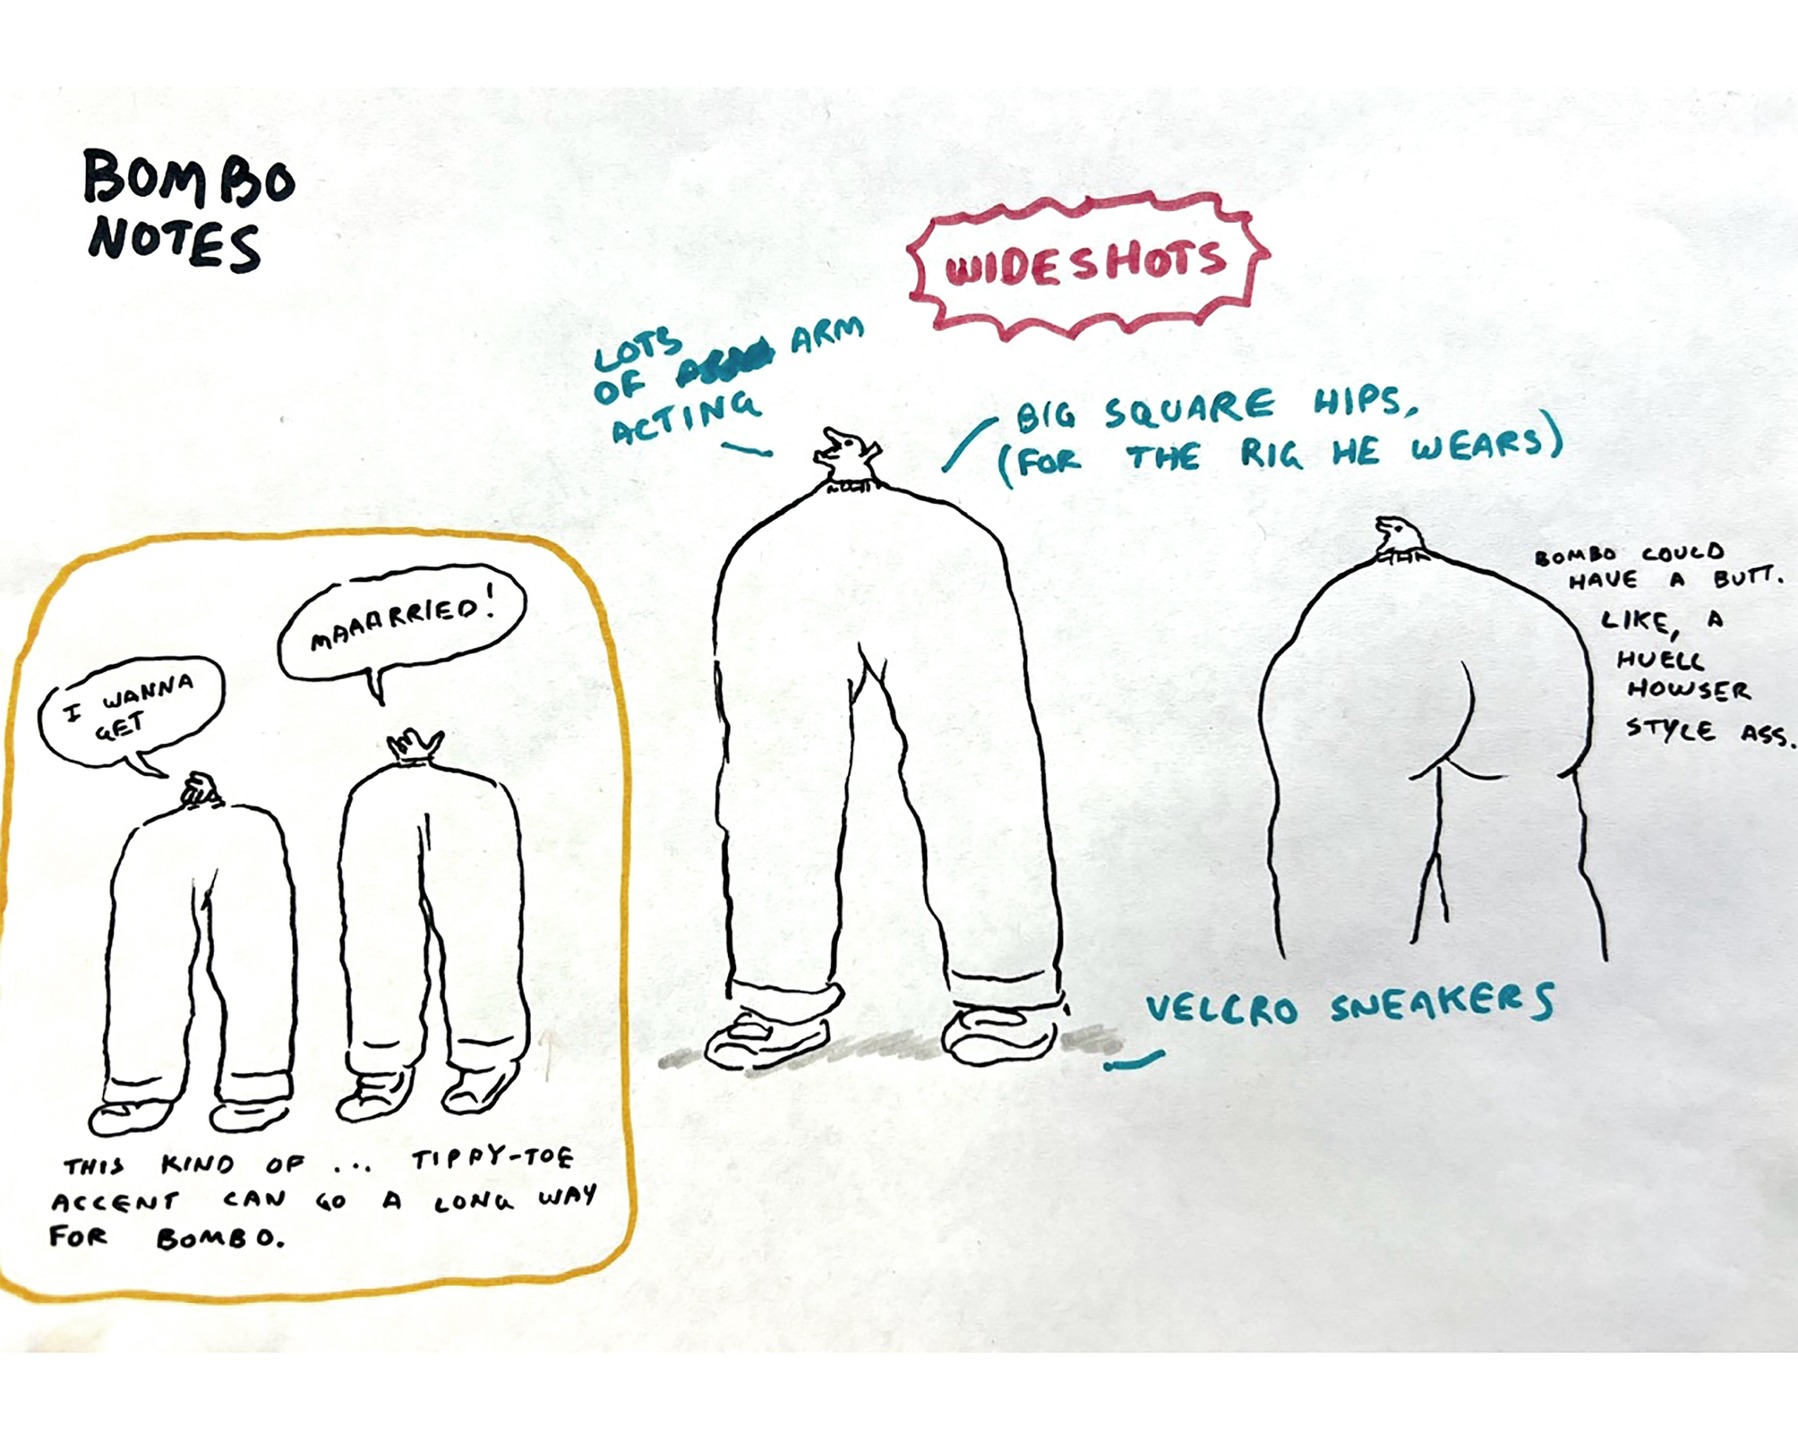 BOMBO
NOTES
WIDESHOTS
LOTS
OF ARM
ACTING
BIG SQUARE HIPS,
(FOR THE RIG HE WEARS)
BOMBO COULD
HAVE A BUTT.
LIKE, A
HUELL
HOWSER
STYLE ASS.
I WANNA
GET
MAAARRIED!
THIS KIND OF ... TIPPY-TOE
ACCENT CAN GO A LONG WAY
FOR BOMBO.
VELCRO SNEAKERS